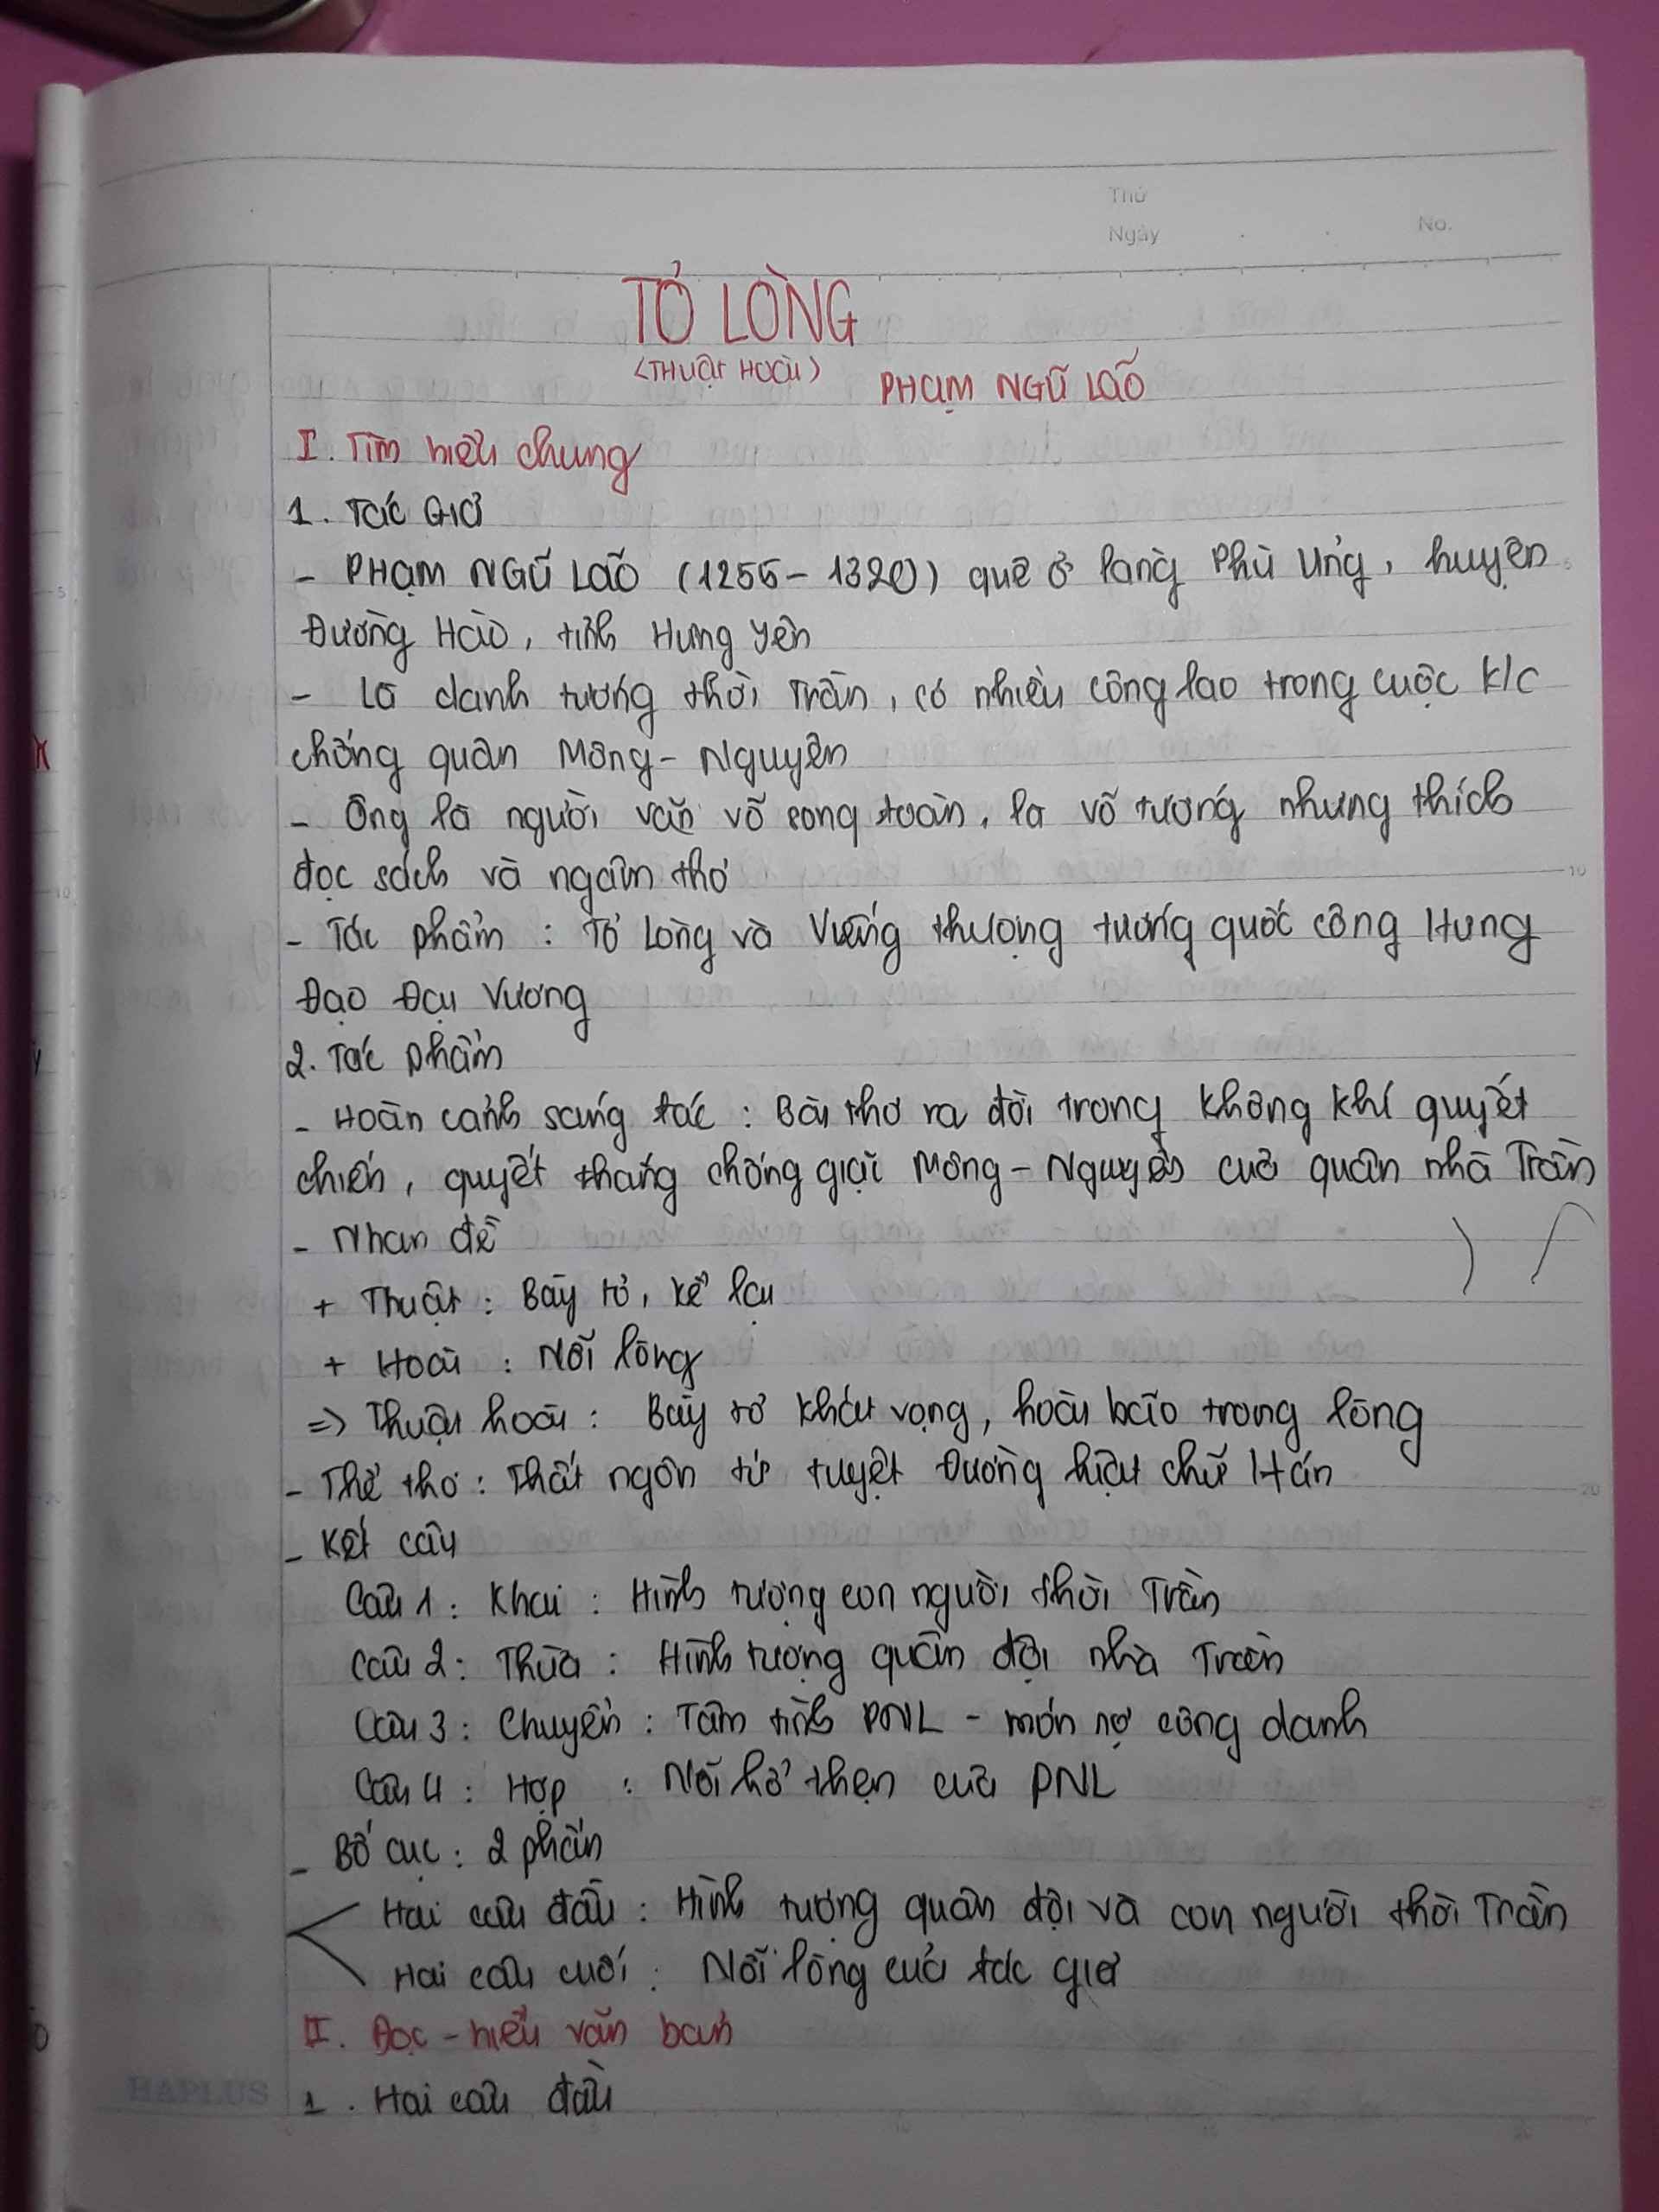 Thứ
Ngày
No.
TỎ LÒNG
(THUẬT HOÀI)
PHẠM NGŨ LÃO
I. Tìm hiểu chung
1. Tác Giả
- PHẠM NGŨ LÃO (1255 - 1320) quê ở làng Phù Ủng, huyện
Đường Hào, tỉnh Hưng Yên
- Là danh tướng thời Trần, có nhiều công lao trong cuộc K/C
chống quân Mông - Nguyên
- Ông là người văn võ song toàn, là võ tướng nhưng thích
đọc sách và ngâm thơ
- Tác phẩm : Tỏ Lòng và Viếng thượng tướng quốc công Hưng
Đạo Đại Vương
2. Tác phẩm
- Hoàn cảnh sáng tác : Bài thơ ra đời trong không khí quyết
chiến, quyết thắng chống giặc Mông - Nguyên của quân nhà Trần
- Nhan đề
+ Thuật : Bày tỏ, kể lại
+ Hoài : Nỗi lòng
=> Thuật hoài : Bày tỏ khát vọng, hoài bão trong lòng
- Thể thơ : Thất ngôn tứ tuyệt Đường luật chữ Hán
- Kết cấu
Câu 1 : Khai : Hình tượng con người thời Trần
Câu 2 : Thừa : Hình tượng quân đội nhà Trần
Câu 3 : Chuyển : Tâm tình PNL - món nợ công danh
Câu 4 : Hợp : Nỗi hổ thẹn của PNL
- Bố cục : 2 phần
Hai câu đầu : Hình tượng quân đội và con người thời Trần
Hai câu cuối : Nỗi lòng của tác giả
II. Đọc - hiểu văn bản
1. Hai câu đầu
HAPLUS